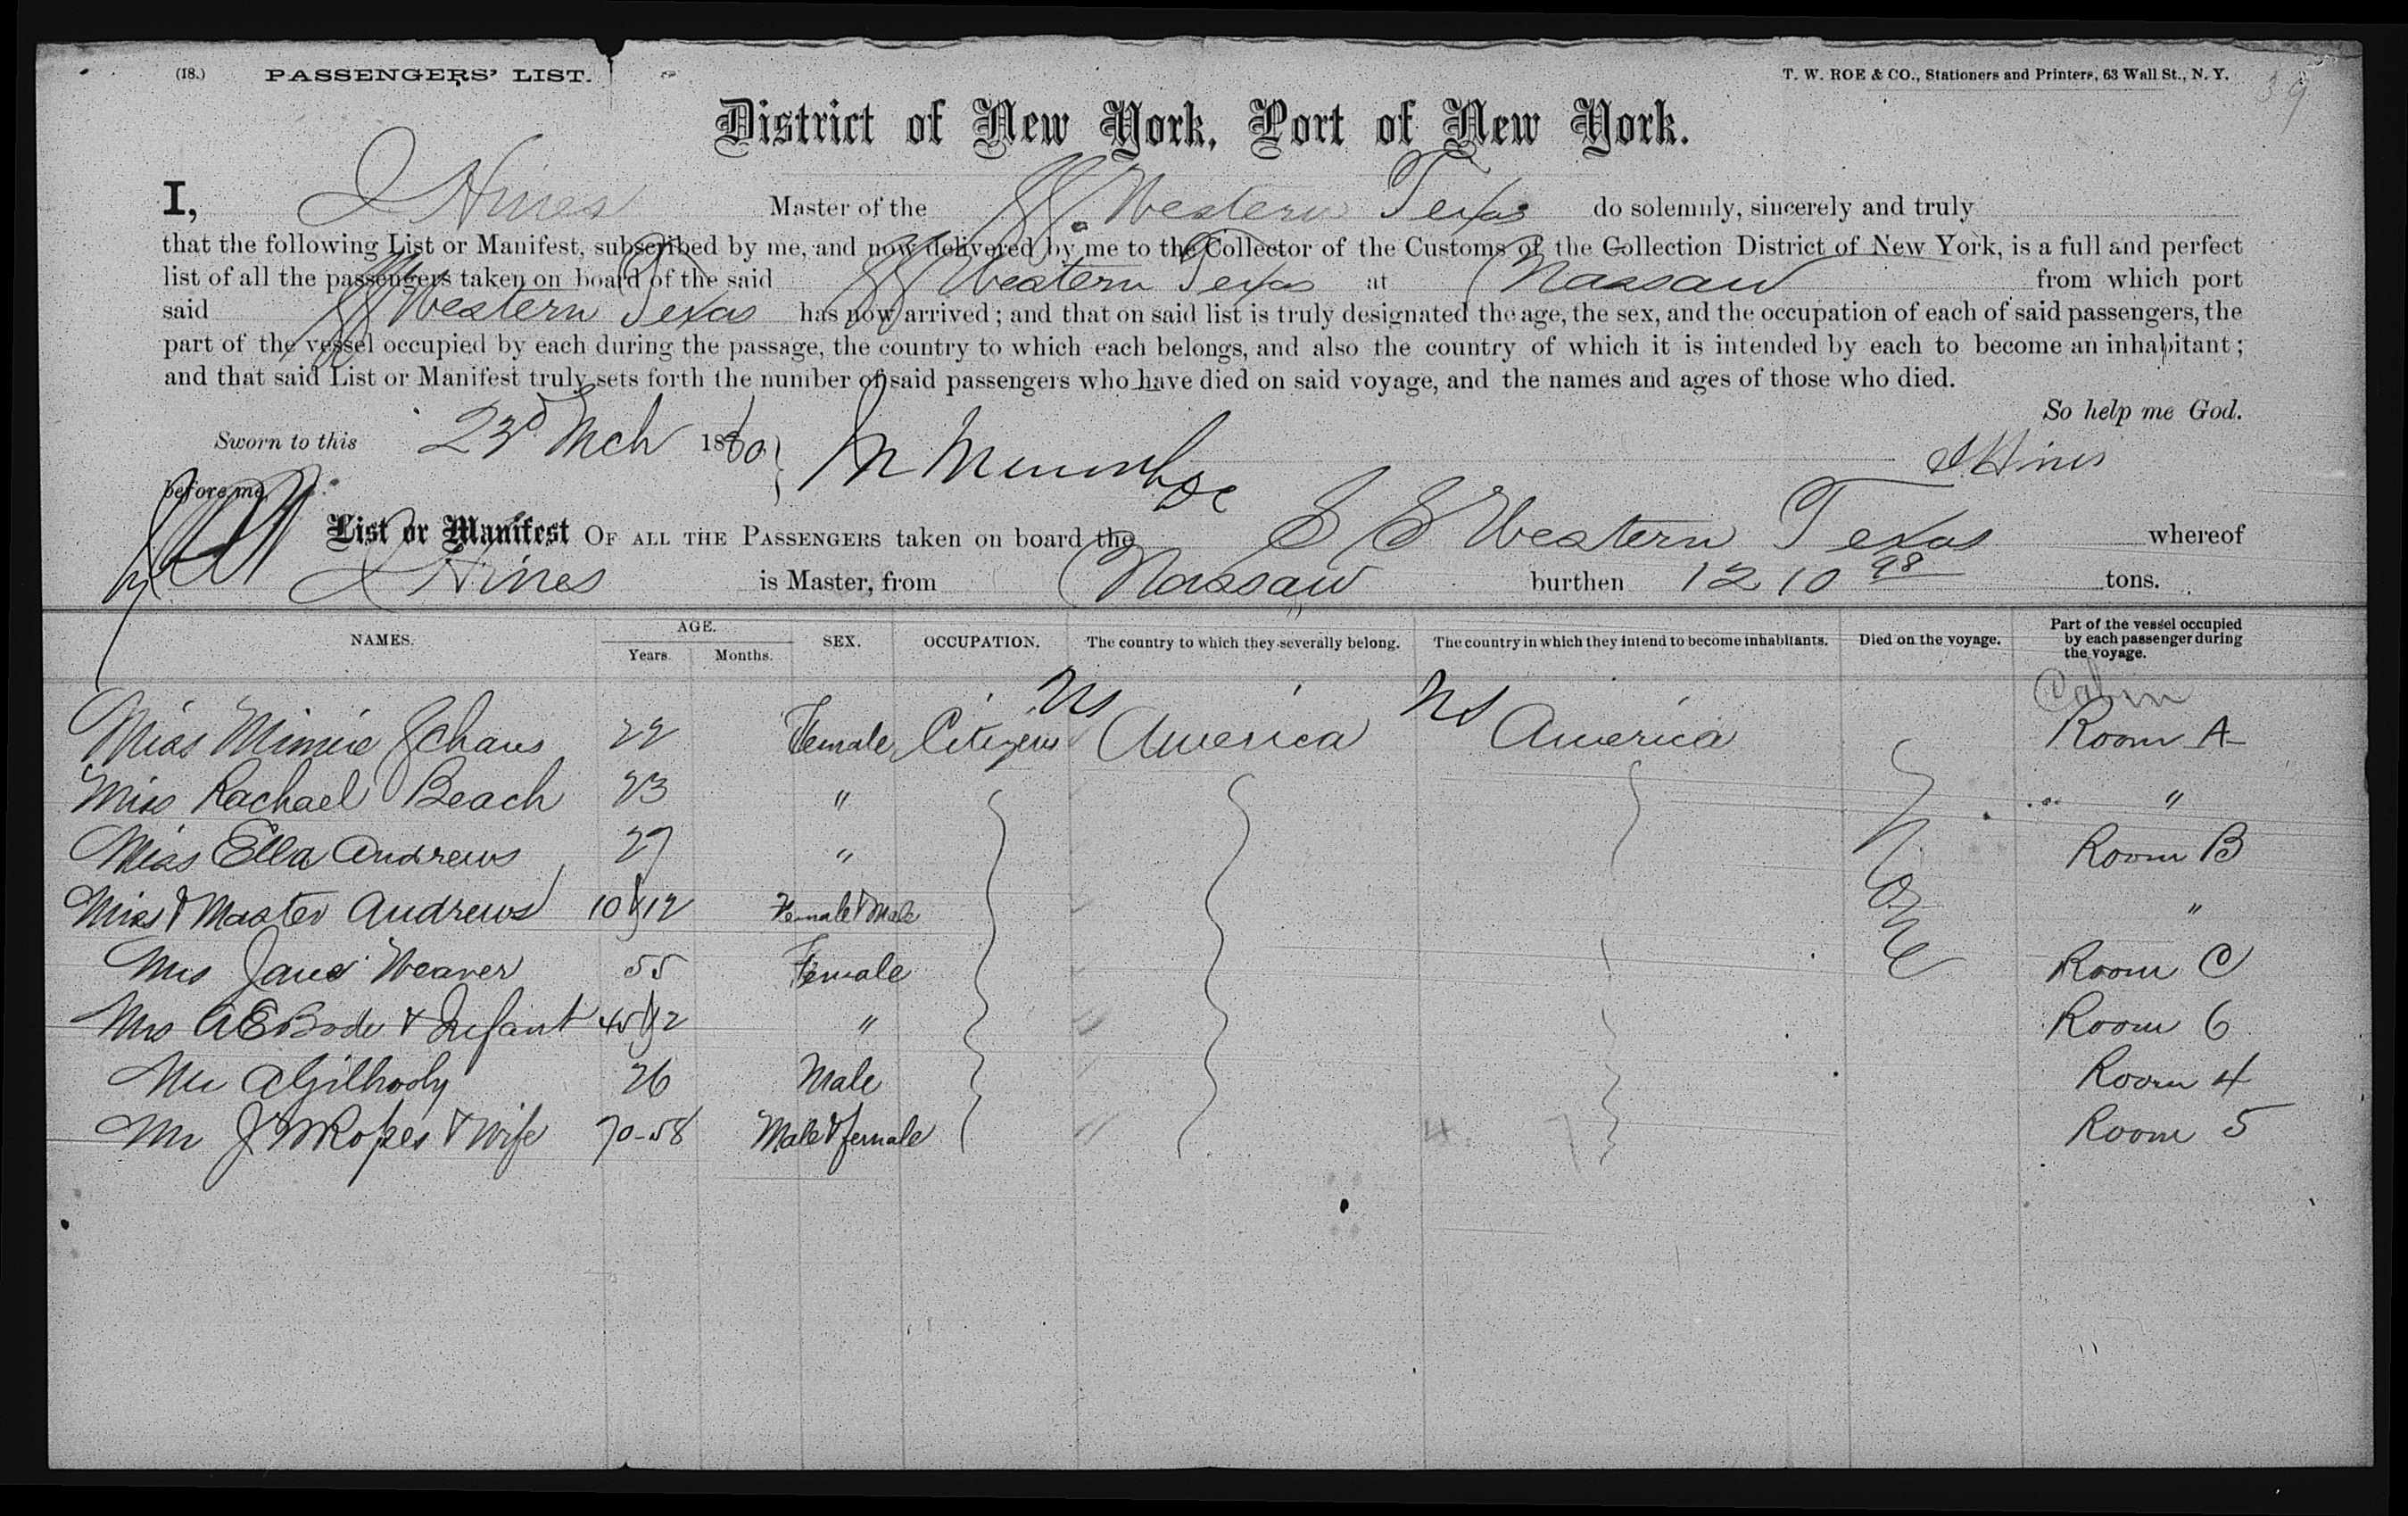 (18.) PASSENGERS' LIST. T. W. ROE & CO., Stationers and Printers, 63 Wall St., N. Y. 39
District of New York, Port of New York.
I, I Hines Master of the SS. Western Texas do solemnly, sincerely and truly
that the following List or Manifest, subscribed by me, and now delivered by me to the Collector of the Customs of the Collection District of New York, is a full and perfect
list of all the passengers taken on board of the said SS Western Texas at Nassau from which port
said SS Western Texas has now arrived; and that on said list is truly designated the age, the sex, and the occupation of each of said passengers, the
part of the vessel occupied by each during the passage, the country to which each belongs, and also the country of which it is intended by each to become an inhabitant;
and that said List or Manifest truly sets forth the number of said passengers who have died on said voyage, and the names and ages of those who died.
So help me God.
Sworn to this 23d Mch 1880 I Hines
before me,
List or Manifest OF ALL THE PASSENGERS taken on board the S S Western Texas whereof
I Hines is Master, from Nassau burthen 1210 98 tons.
NAMES. AGE. Years. Months. SEX. OCCUPATION. The country to which they severally belong. The country in which they intend to become inhabitants. Died on the voyage. Part of the vessel occupied by each passenger during the voyage.
Cabin
Miss Minnie Schaus 22 Female Citizens US America US America Room A
Miss Rachael Beach 23 " "
Miss Ella Andrews 27 " Room B
Miss & Master Andrews 10 & 12 Female & Male "
Mrs Jane Weaver 55 Female None Room C
Mrs A E Bode & Infant 45 & 2 " Room 6
Mr A Gilhooly 26 Male Room 4
Mr J Ropes & Wife 70-58 Male & female Room 5